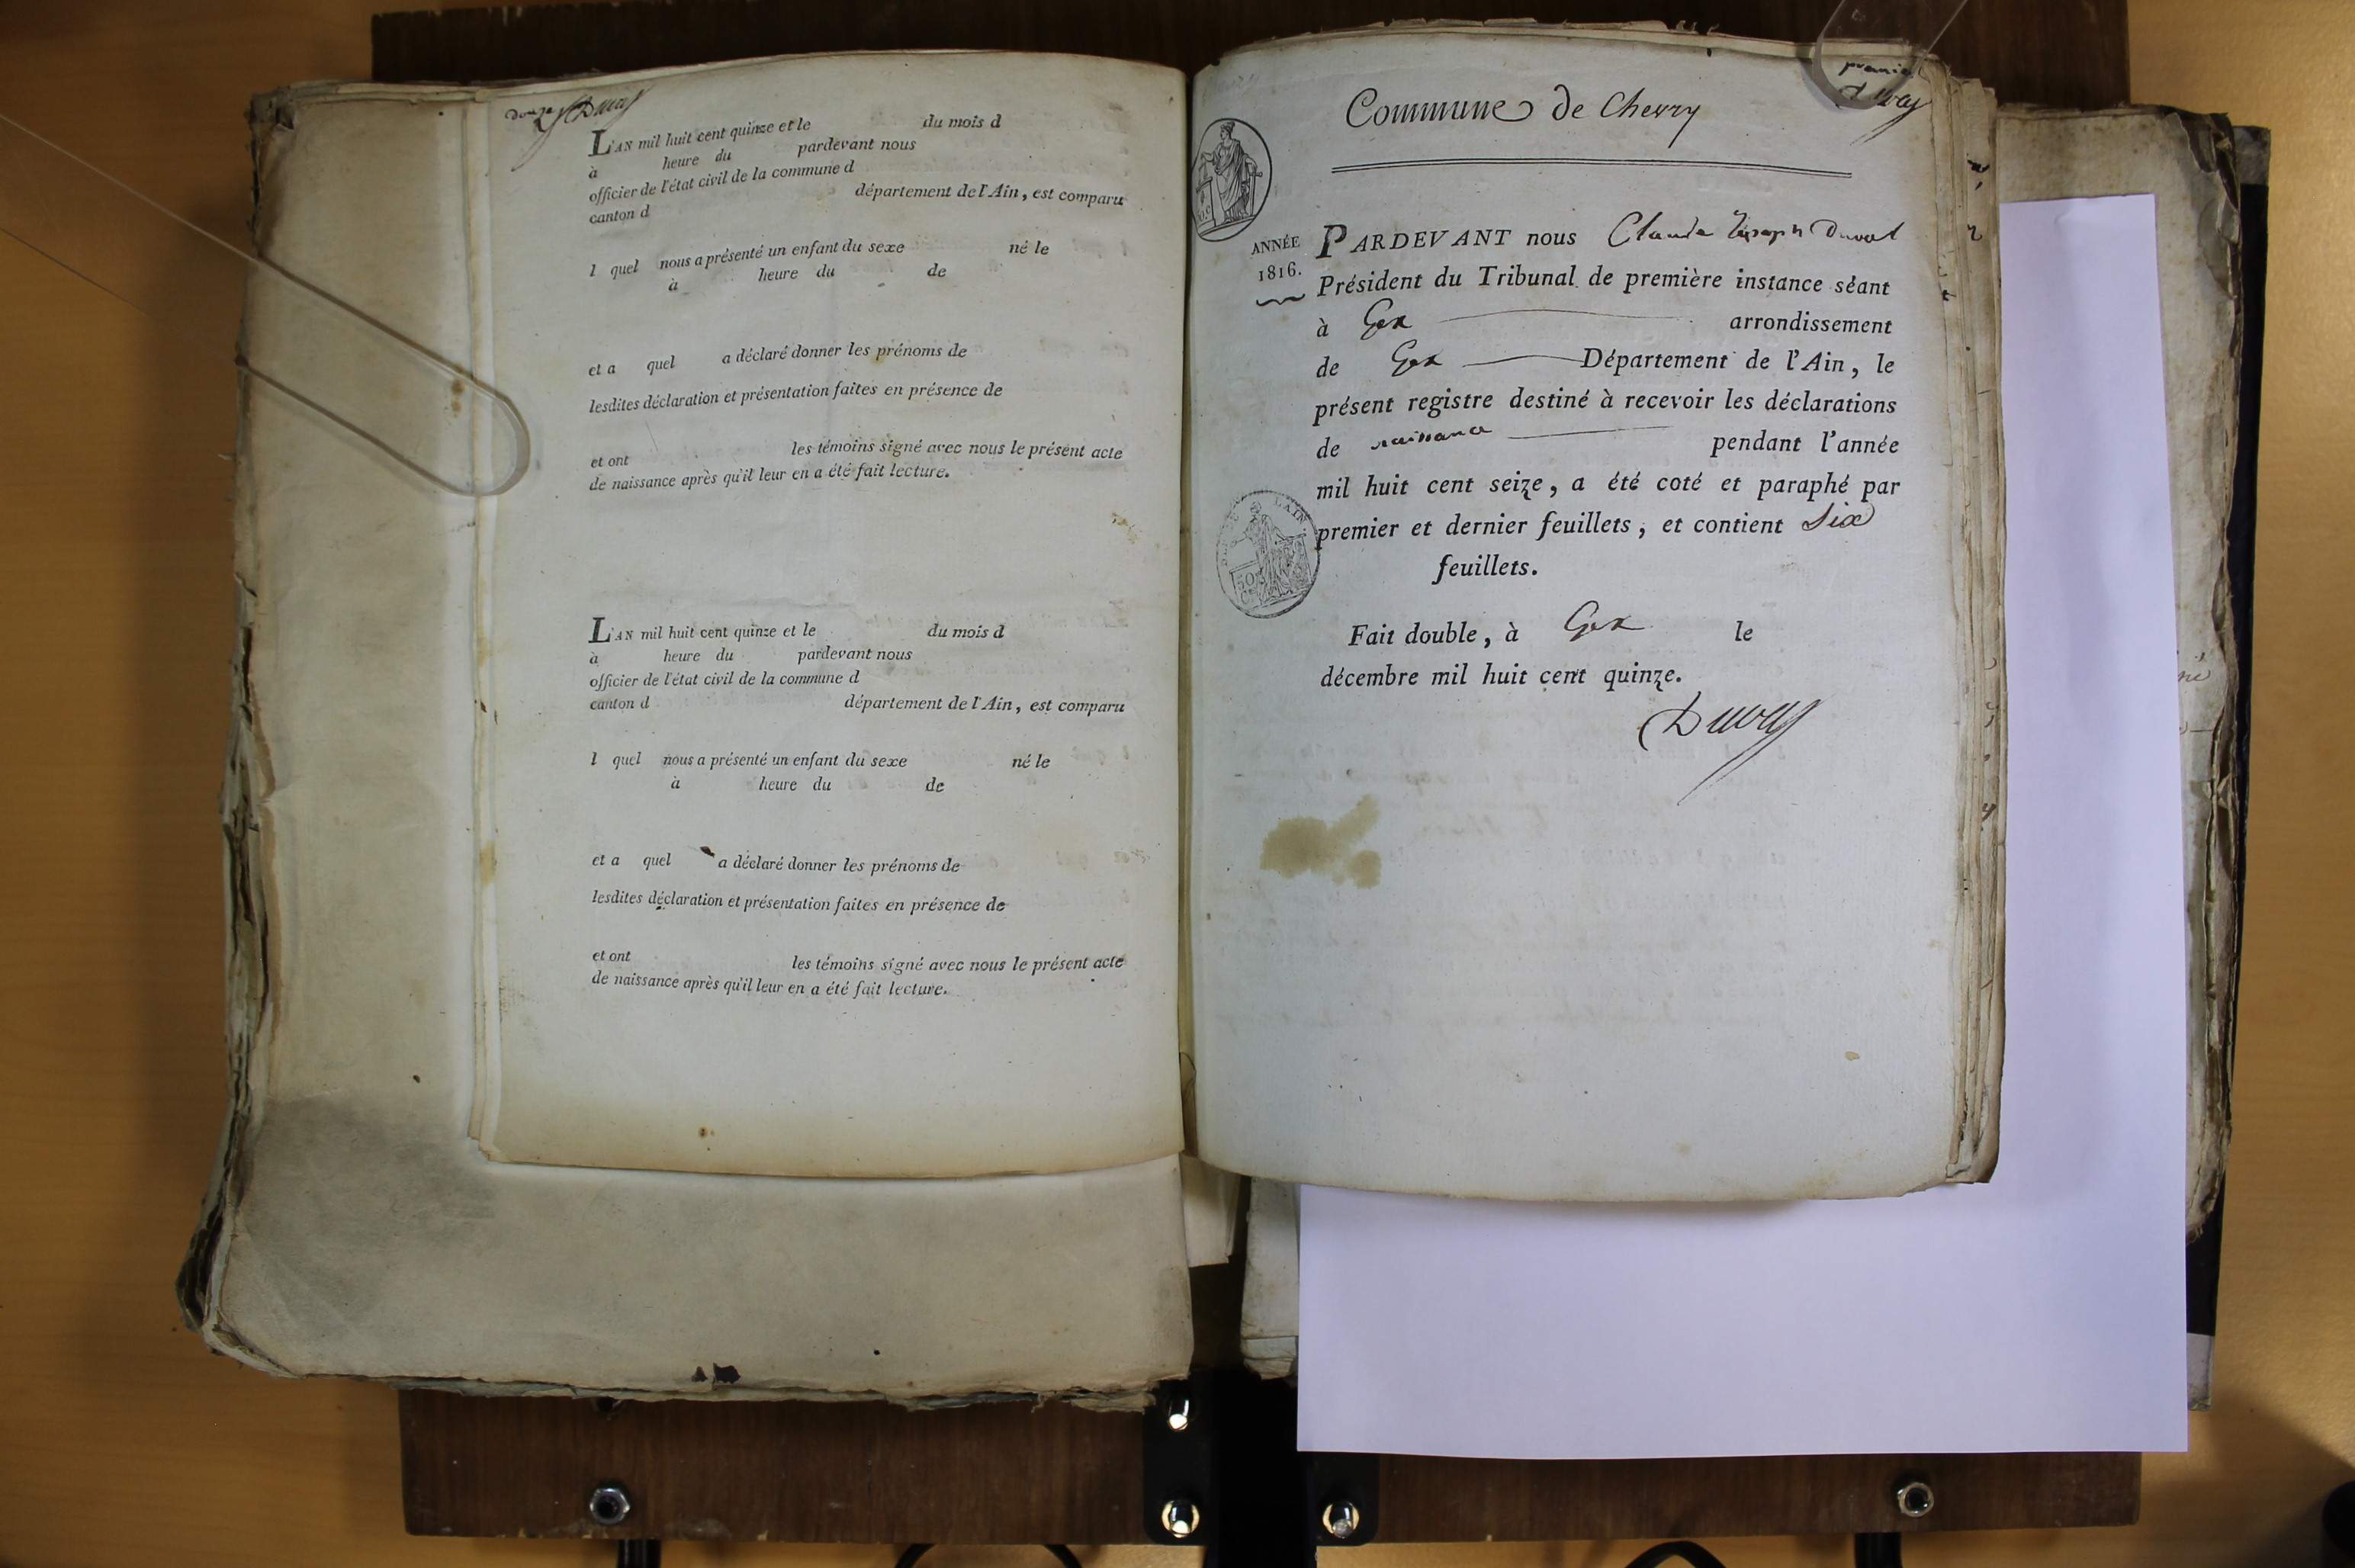 douze Duval
L'AN mil huit cent quinze et le du mois d
à heure du pardevant nous
officier de l'état civil de la commune d
canton d département de l'Ain, est comparu
l quel nous a présenté un enfant du sexe né le
à heure du de
et a quel a déclaré donner les prénoms de
lesdites déclaration et présentation faites en présence de
et ont les témoins signé avec nous le présent acte
de naissance après qu'il leur en a été fait lecture.
L'AN mil huit cent quinze et le du mois d
à heure du pardevant nous
officier de l'état civil de la commune d
canton d département de l'Ain, est comparu
l quel nous a présenté un enfant du sexe né le
à heure du de
et a quel a déclaré donner les prénoms de
lesdites déclaration et présentation faites en présence de
et ont les témoins signé avec nous le présent acte
de naissance après qu'il leur en a été fait lecture.
premier
Duval
Commune de Chevry
ANNÉE
1816.
PARDEVANT nous Claude Joseph Duval
Président du Tribunal de première instance séant
à Gex arrondissement
de Gex Département de l'Ain, le
présent registre destiné à recevoir les déclarations
de naissance pendant l'année
mil huit cent seize, a été coté et paraphé par
premier et dernier feuillets, et contient six
feuillets.
L'AIN
50
C
Fait double, à Gex le
décembre mil huit cent quinze.
Duval